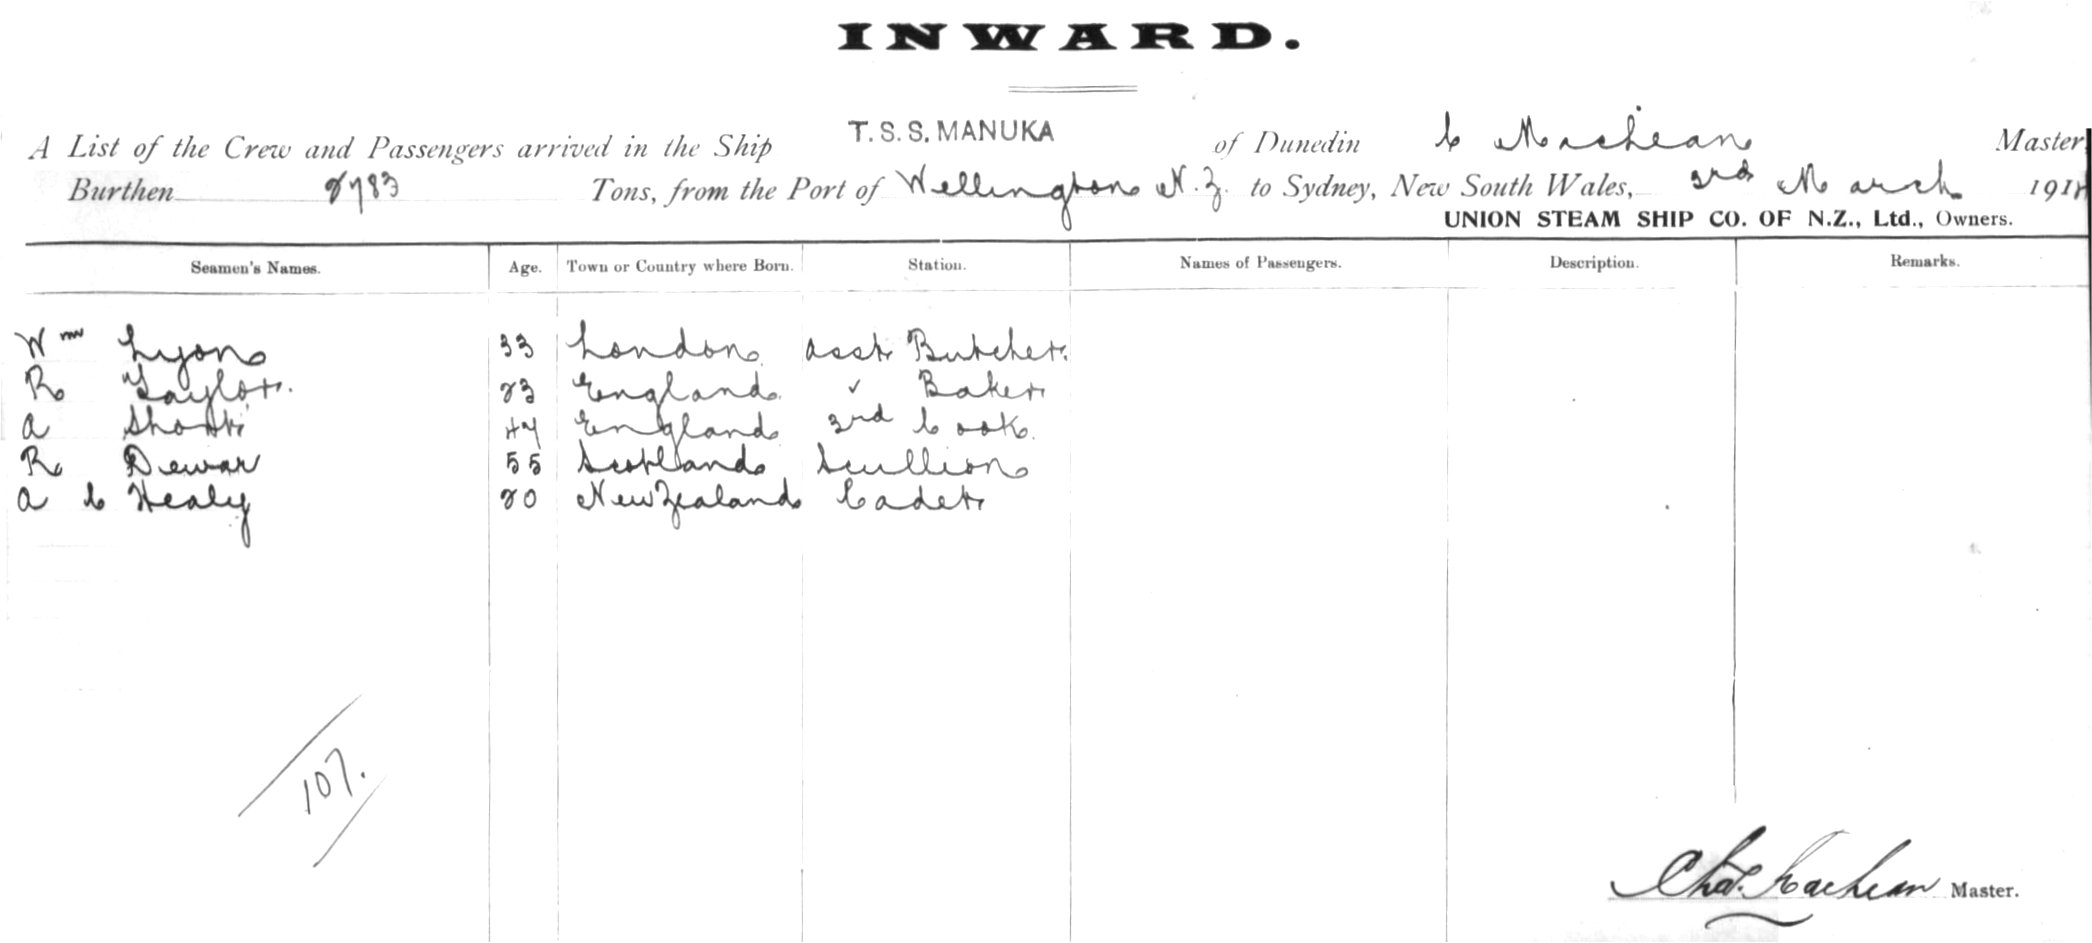 INWARD.
A List of the Crew and Passengers arrived in the Ship T.S.S. MANUKA of Dunedin C MacLean Master,
Burthen 2783 Tons, from the Port of Wellington N.Z. to Sydney, New South Wales, 3rd March 191
UNION STEAM SHIP CO. OF N.Z., Ltd., Owners.
Seamen's Names. Age. Town or Country where Born. Station. Names of Passengers. Description. Remarks.
Wm Lyon 33 London asst Butcher.
R Taylor. 23 England Baker
A Short 47 England 3rd Cook.
R Dewar 55 Scotland Scullion
A C Healy 20 New Zealand Cadet
107.
Chas. MacLean Master.